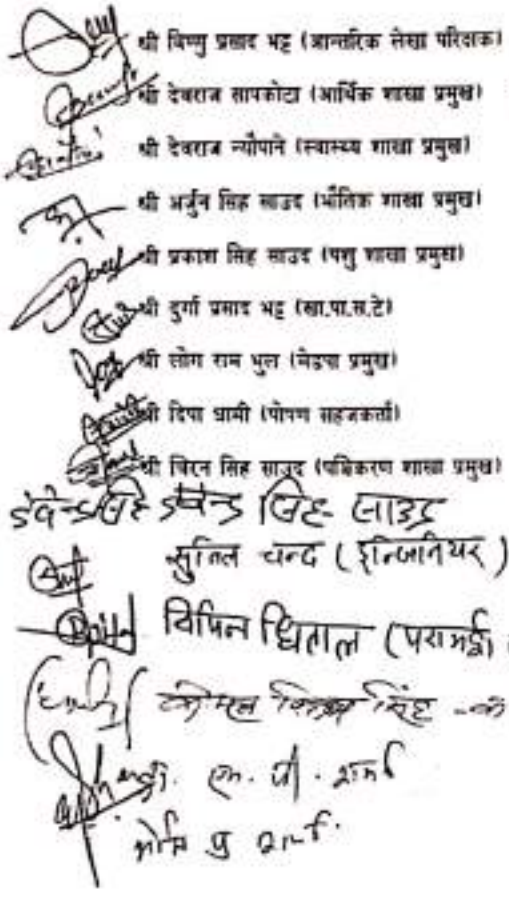 श्री विष्णु प्रसाद भट्ट (आन्तरिक लेखा परिक्षक)
श्री देवराज सापकोटा (आर्थिक शाखा प्रमुख)
श्री देवराज न्यौपाने (स्वास्थ्य शाखा प्रमुख)
श्री अर्जुन सिंह साउद (भौतिक शाखा प्रमुख)
श्री प्रकाश सिंह साउद (पशु शाखा प्रमुख)
श्री दुर्गा प्रसाद भट्ट (खा.पा.स.टे)
श्री लोग राम भुल (मेडपा प्रमुख)
श्री दिपा धामी (पोषण सहजकर्ता)
श्री चिरन सिंह साउद (पञ्जिकरण शाखा प्रमुख)
सिंह साउद
सुनिल चन्द (इन्जिनियर)
विपिन धिताल
सिंह
एम. पी. शर्मा